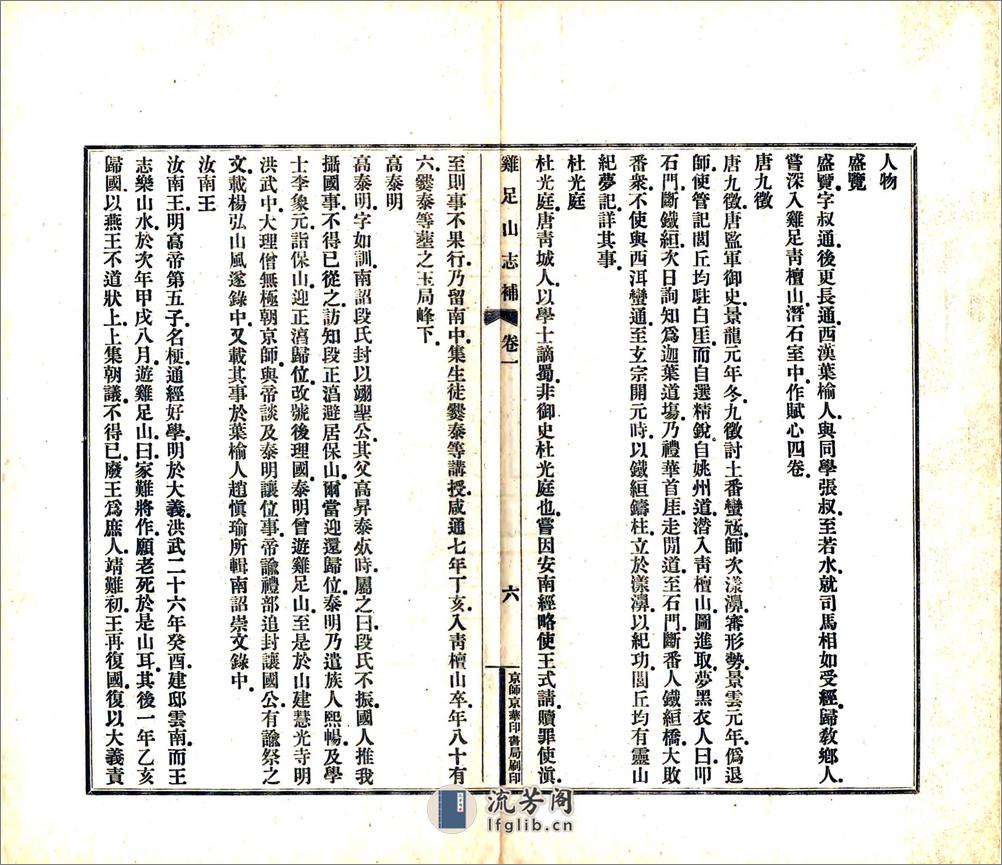 人物
盛覽
盛覽字叔通後更長通西漢葉榆人與同學張叔至若水就司馬相如受經歸敎鄉人
嘗深入雞足靑檀山潛石室中作賦心四卷
唐九徵
唐九徵唐監軍御史景龍元年冬九徵討土番蠻寇師次漾濞審形勢景雲元年僞退
師使管記閭丘均駐白厓而自選精銳自姚州道潛入靑檀山圖進取夢黑衣人曰叩
石門斷鐵絙次日詢知爲迦葉道塲乃禮華首厓走閒道至石門斷番人鐵絙橋大敗
番衆不使與西洱蠻通至玄宗開元時以鐵絙鑄柱立於漾濞以紀功閭丘均有靈山
紀夢記詳其事
杜光庭
杜光庭唐靑城人以學士謫蜀非御史杜光庭也嘗因安南經略使王式請贖罪使滇
雞足山志補 卷一 六 京師京華印書局刷印
至則事不果行乃留南中集生徒爨泰等講授咸通七年丁亥入靑檀山卒年八十有
六爨泰等塟之玉局峰下
高泰明
高泰明字如訓南詔段氏封以翊聖公其父高昇泰㱔時屬之曰段氏不振國人推我
攝國事不得已從之訪知段正淐避居保山爾當迎還歸位泰明乃遣族人熙暢及學
士李象元詣保山迎正淐歸位改號後理國泰明曾遊雞足山至是於山建慧光寺明
洪武中大理僧無極朝京師與帝談及泰明讓位事帝諭禮部追封讓國公有諭祭之
文載楊弘山風遂錄中又載其事於葉榆人趙愼瑜所輯南詔崇文錄中
汝南王
汝南王明高帝第五子名梗通經好學明於大義洪武二十六年癸酉建邸雲南而王
志樂山水於次年甲戌八月遊雞足山曰家難將作願老死於是山耳其後一年乙亥
歸國以燕王不道狀上上集朝議不得已廢王爲庶人靖難初王再復國復以大義責
流芳阁
lfglib.cn